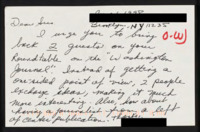 Brooklyn, NY 11235
Dear Sirs
O-W
I urge you to bring
back 2 guests on your
Roundtable on the Washington
Journal. Instead of getting a
one-sided point of view, 2 people
exchange ideas, making it much
more interesting. Also, how about
having a journalist from a left
of center publication. Thanks